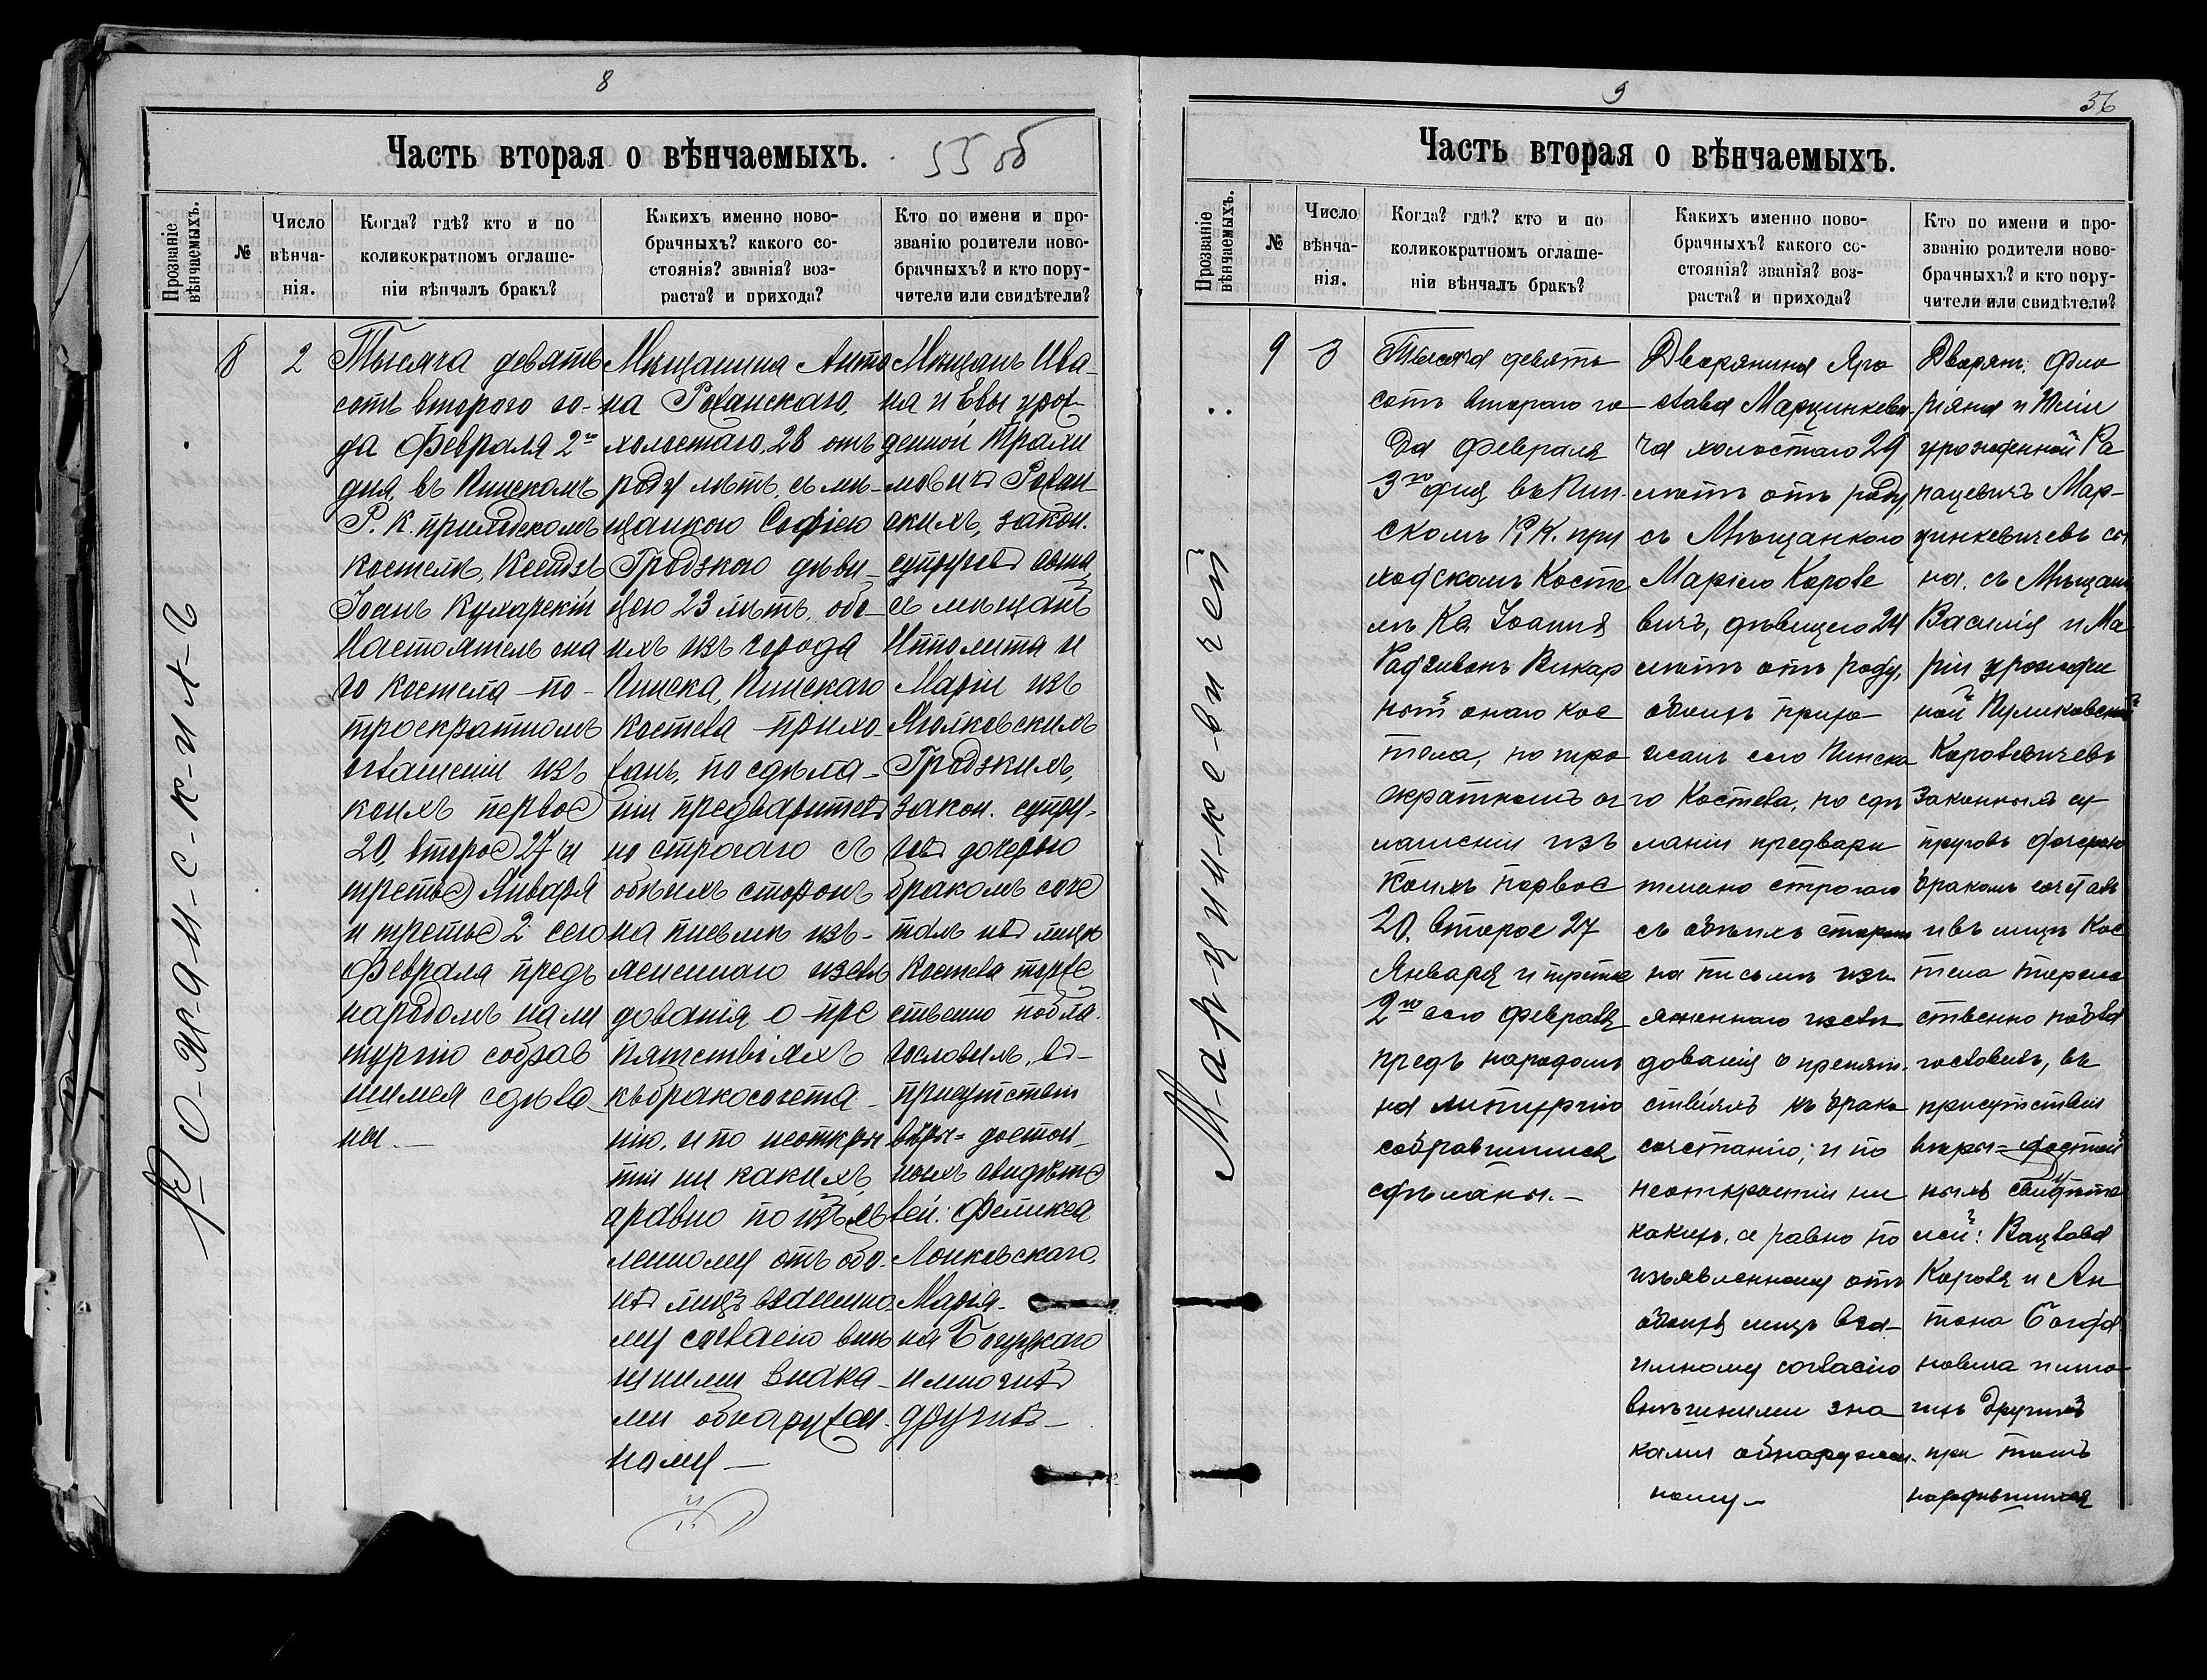 8
Часть вторая о вѣнчаемыхъ.
55 об
Прозваніе вѣнчаемыхъ.
№
Число вѣнча-
нія.
Когда? гдѣ? кто и по
коликократномъ оглаше-
ніи вѣнчалъ бракъ?
Какихъ именно ново-
брачныхъ? какого со-
стоянія? званія? воз-
раста? и прихода?
Кто по имени и про-
званію родители ново-
брачныхъ? и кто пору-
чители или свидѣтели?
Ро-ж-а-н-с-к-и-х-ъ
8
2
Тысяча девять
сотъ второго го-
да Февраля 2го
дня, въ Пинскомъ
Р. К. приходскомъ
костелѣ, Ксендзъ
Іоанъ Кухарскій
Настоятель она
го костела по-
троекратномъ
оглашеніи изъ
коихъ первое
20, второе 27 и
третье Января
и третье 2 сего
Февраля предъ
народомъ на ли
тургію собрав
шимся сдѣла-
ны.—
Мѣщанина Анто
на Рожанскаго,
холостаго, 28 отъ
роду лѣтъ, съ мѣ-
щанкою Софіею
Гродзкою дѣви-
цею 23 лѣтъ, обо-
ихъ изъ города
Пинска, Пинскаго
костела прихо-
жанъ, по сдѣла-
ніи предварител
но строгаго съ
обѣихъ сторонъ
на письмѣ изъ-
ясненнаго изслѣ
дованія о пре
пятствіяхъ
къ бракосочета-
нію, и по неоткры
тіи ни какихъ,
аравно по изъяв
ленному отъ обо-
ихъ лицъ взаимно
му согласію внѣ
шними знака-
ми обнаружен-
ному —
Мѣщанъ Ива-
на и Евы урож
денной Трахи
мовичъ Рожан-
скихъ, закон.
супруговъ сына,
съ мѣщанъ
Ипполита и
Маріи изъ
Гродзкихъ,
закон. супру-
говъ дочерью
бракомъ соче
талъ и въ лицѣ
Костела торже
ственно побла-
гословилъ, въ-
присутствіи
вѣры-достой-
ныхъ свидѣте
лей: Феликса
Лонковскаго,
Марія-
на Богуцкаго
и многихъ
другихъ—
9
36
Часть вторая о вѣнчаемыхъ.
Прозваніе вѣнчаемыхъ.
№
Число
вѣнча-
нія.
Когда? гдѣ? кто и по
коликократномъ оглаше-
ніи вѣнчалъ бракъ?
Какихъ именно ново-
брачныхъ? какого со-
стоянія? званія? воз-
раста? и прихода?
Кто по имени и про-
званію родители ново-
брачныхъ? и кто пору-
чители или свидѣтели?
М-а-р-ц-и-н-к-е-в-и-ч-е-й
9
3
Тысяча девять
сотъ второго го-
да Февраля
3го дня въ Пин-
скомъ Р. К. при
ходскомъ Косте
лѣ Кс. Іоаннъ
Радзивонъ Викар
ный онаго кос
тела, по тро
екратномъ ог
лашеніи изъ
коихъ первое
20, второе 27
Января и третье
2го сего Февраля
предъ народомъ
на литургію
собравшимся
сдѣланы.—
Дворянина Яро
слава Марцинкеви-
ча холостаго 29
лѣтъ отъ роду,
съ Мѣщанкою
Маріею Короле
вичъ, дѣвицею 24
лѣтъ отъ роду,
обоихъ прихо-
жанъ сего Пинска
го Костела, по сдѣ
ланіи предвари
тельно строгаго
съ обѣихъ сторон
на письмѣ изъ-
ясненнаго изслѣ
дованія о препят-
ствіяхъ къ брако
сочетанію; и по
неоткрытіи ни
какихъ, а равно по
изъявленному отъ
обоихъ лицъ вза-
имному согласію
внѣшними зна
ками обнаружен-
ному—
Дворян. Фло
ріяна и Юліи
урожденной Ра
пацевичъ Мар-
цинкевичевъ сы
на, съ Мѣщанъ
Василія и Ма
ріи урожден
ной Пуликовской
Королевичевъ
законныхъ су-
пруговъ дочерью
бракомъ сочеталъ
и въ лицѣ Кос
тела торже
ственно побла
гословилъ, въ
присутствіи
вѣры-достой
ныхъ свидѣте
лей: Вацлава
Короля и Ан
тона Богда
новича и мно-
гихъ другихъ
при томъ
находившихся